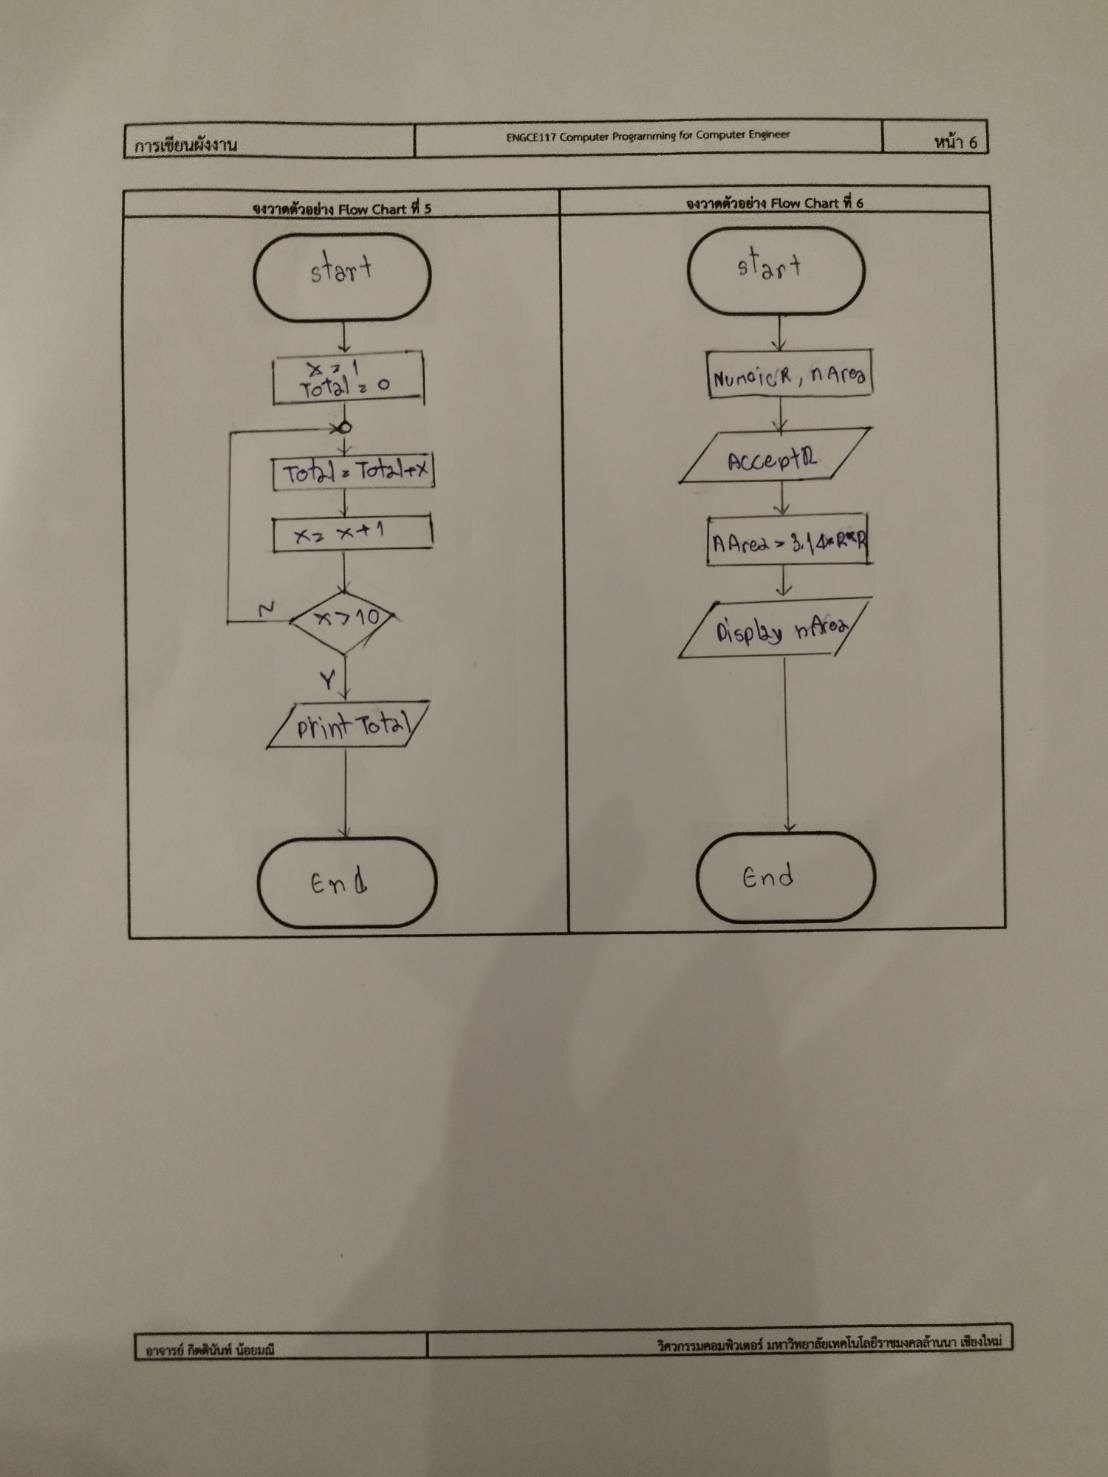 การเขียนผังงาน
ENGCE117 Computer Programming for Computer Engineer
หน้า 6
จงวาดตัวอย่าง Flow Chart ที่ 5
start
x = 1
Total = 0
Total = Total+x
x = x+1
x > 10
N
Y
print Total
End
จงวาดตัวอย่าง Flow Chart ที่ 6
start
NumaicR, nArea
AcceptR
nArea = 3.14*R*R
Display nArea
End
อาจารย์ กิตตินันท์ น้อยมณี
วิศวกรรมคอมพิวเตอร์ มหาวิทยาลัยเทคโนโลยีราชมงคลล้านนา เชียงใหม่